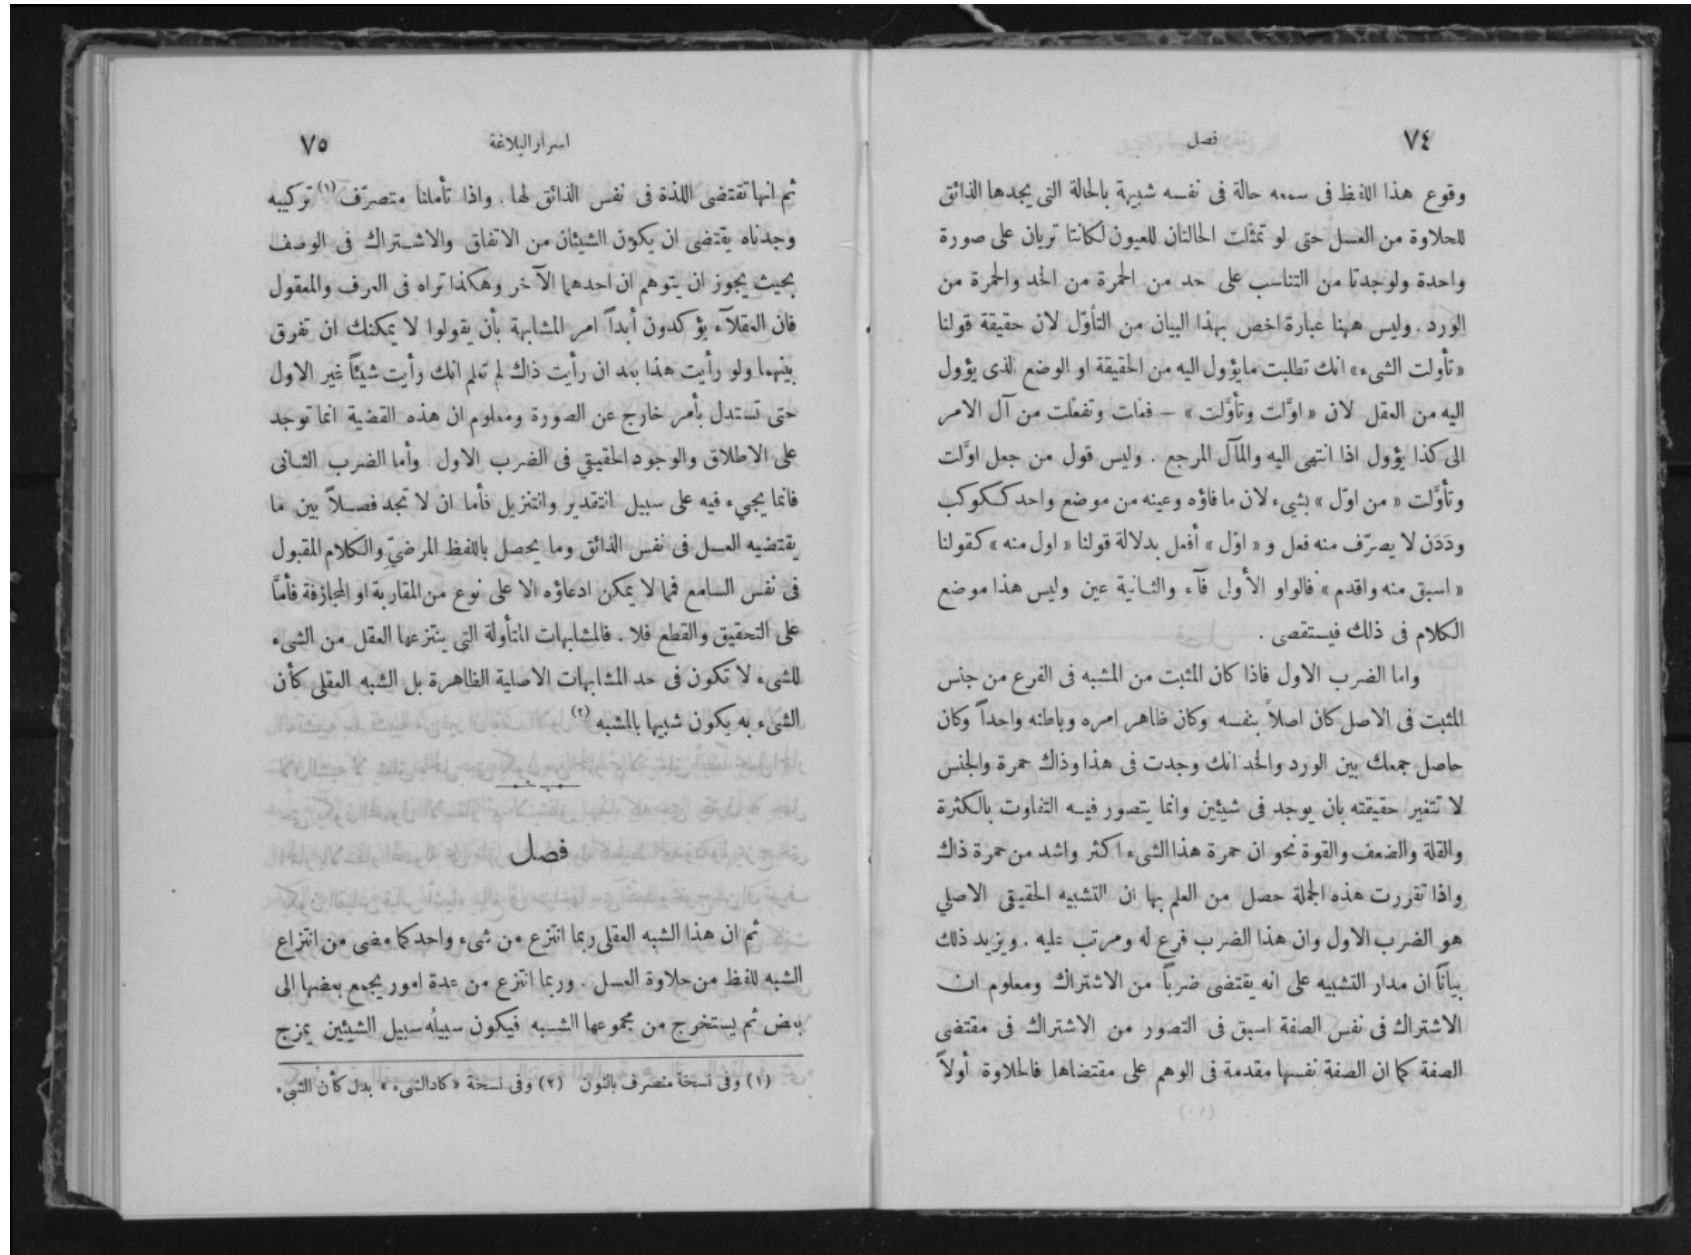 ٧٤
فصل
وقوع هذا اللفظ فى سمعه حالة فى نفسه شبيهة بالحالة التى يجدها الذائق
للحلاوة من العسل حتى لو تمثلت الحالتان للعيون لكانتا تريان على صورة
واحدة ولوجدتا من التناسب على حد من الحمرة من الخد والحمرة من
الورد . وليس ههنا عبارة اخص بهذا البيان من التأوّل لان حقيقة قولنا
«تأولت الشىء» انك تطلبت مايؤول اليه من الحقيقة او الوضع الذى يؤول
اليه من العقل لان « اوَّلت وتأوَّلت » — فعلت وتفعلت من آل الامر
الى كذا يؤول اذا انتهى اليه والمآل المرجع . وليس قول من جعل اوّلت
وتأوَّلت « من اوّل » بشيىء لان ما فاؤه وعينه من موضع واحد ككوكب
ودَدَن لا يصرّف منه فعل و « اوّل » أفعل بدلالة قولنا « اول منه » كقولنا
« اسبق منه واقدم » فالواو الأولى فآء والثانية عين وليس هذا موضع
الكلام فى ذلك فيستقصى .
واما الضرب الاول فاذا كان المثبت من المشبه فى الفرع من جنس
المثبت فى الاصل كان اصلاً بنفسه وكان ظاهر امره وباطنه واحداً وكان
حاصل جمعك بين الورد والخد انك وجدت فى هذا وذاك حمرة والجنس
لا تتغير حقيقته بان يوجد فى شيئين وانما يتصور فيه التفاوت بالكثرة
والقلة والضعف والقوة نحو ان حمرة هذا الشىء اكثر واشد من حمرة ذاك
واذا تقررت هذه الجملة حصل من العلم بها ان التشبيه الحقيقى الاصلي
هو الضرب الاول وان هذا الضرب فرع له ومرتب عليه . ويزيد ذلك
بياناً ان مدار التشبيه على انه يقتضى ضرباً من الاشتراك ومعلوم ان
الاشتراك فى نفس الصفة اسبق فى التصور من الاشتراك فى مقتضى
الصفة كما ان الصفة نفسها مقدمة فى الوهم على مقتضاها فالحلاوة أولاً
اسرار البلاغة
٧٥
ثم انها تقتضى اللذة فى نفس الذائق لها . واذا تأملنا متصرّف (١) تركيبه
وجدناه يقتضى ان يكون الشيئان من الاتفاق والاشتراك فى الوصف
بحيث يجوز ان يتوهم ان احدهما الآخر وهكذا تراه فى العرف والمعقول
فان العقلآء يؤكدون أبداً امر المشابهة بأن يقولوا لا يمكنك ان تفرق
بينهما ولو رأيت هذا بعد ان رأيت ذاك لم تعلم انك رأيت شيئاً غير الاول
حتى تستدل بأمر خارج عن الصورة ومعلوم ان هذه القضية انما توجد
على الاطلاق والوجود الحقيقي فى الضرب الاول . وأما الضرب الثانى
فانما يجيء فيه على سبيل التقدير والتنزيل فأما ان لا تجد فصلاً بين ما
يقتضيه العسل فى نفس الذائق وما يحصل باللفظ المرضيّ والكلام المقبول
فى نفس السامع فمما لا يمكن ادعاؤه الا على نوع من المقاربة او المجازفة فأمَّا
على التحقيق والقطع فلا . فالمشابهات المتأولة التى ينتزعها العقل من الشىء
للشىء لا تكون فى حد المشابهات الاصلية الظاهرة بل الشبه العقلى كأن
الشىء به يكون شبيها بالمشبه (٢)
فصل
ثم ان هذا الشبه العقلى ربما انتزع من شىء واحد كما مضى من انتزاع
الشبه للفظ من حلاوة العسل . وربما انتزع من عدة امور يجمع بعضها الى
بعض ثم يستخرج من مجموعها الشبه فيكون سبيلُه سبيل الشيئين يمزج
(١) وفى نسخة منصرف بالنون (٢) وفى نسخة «كاد الشىء» بدل كأن الشىء